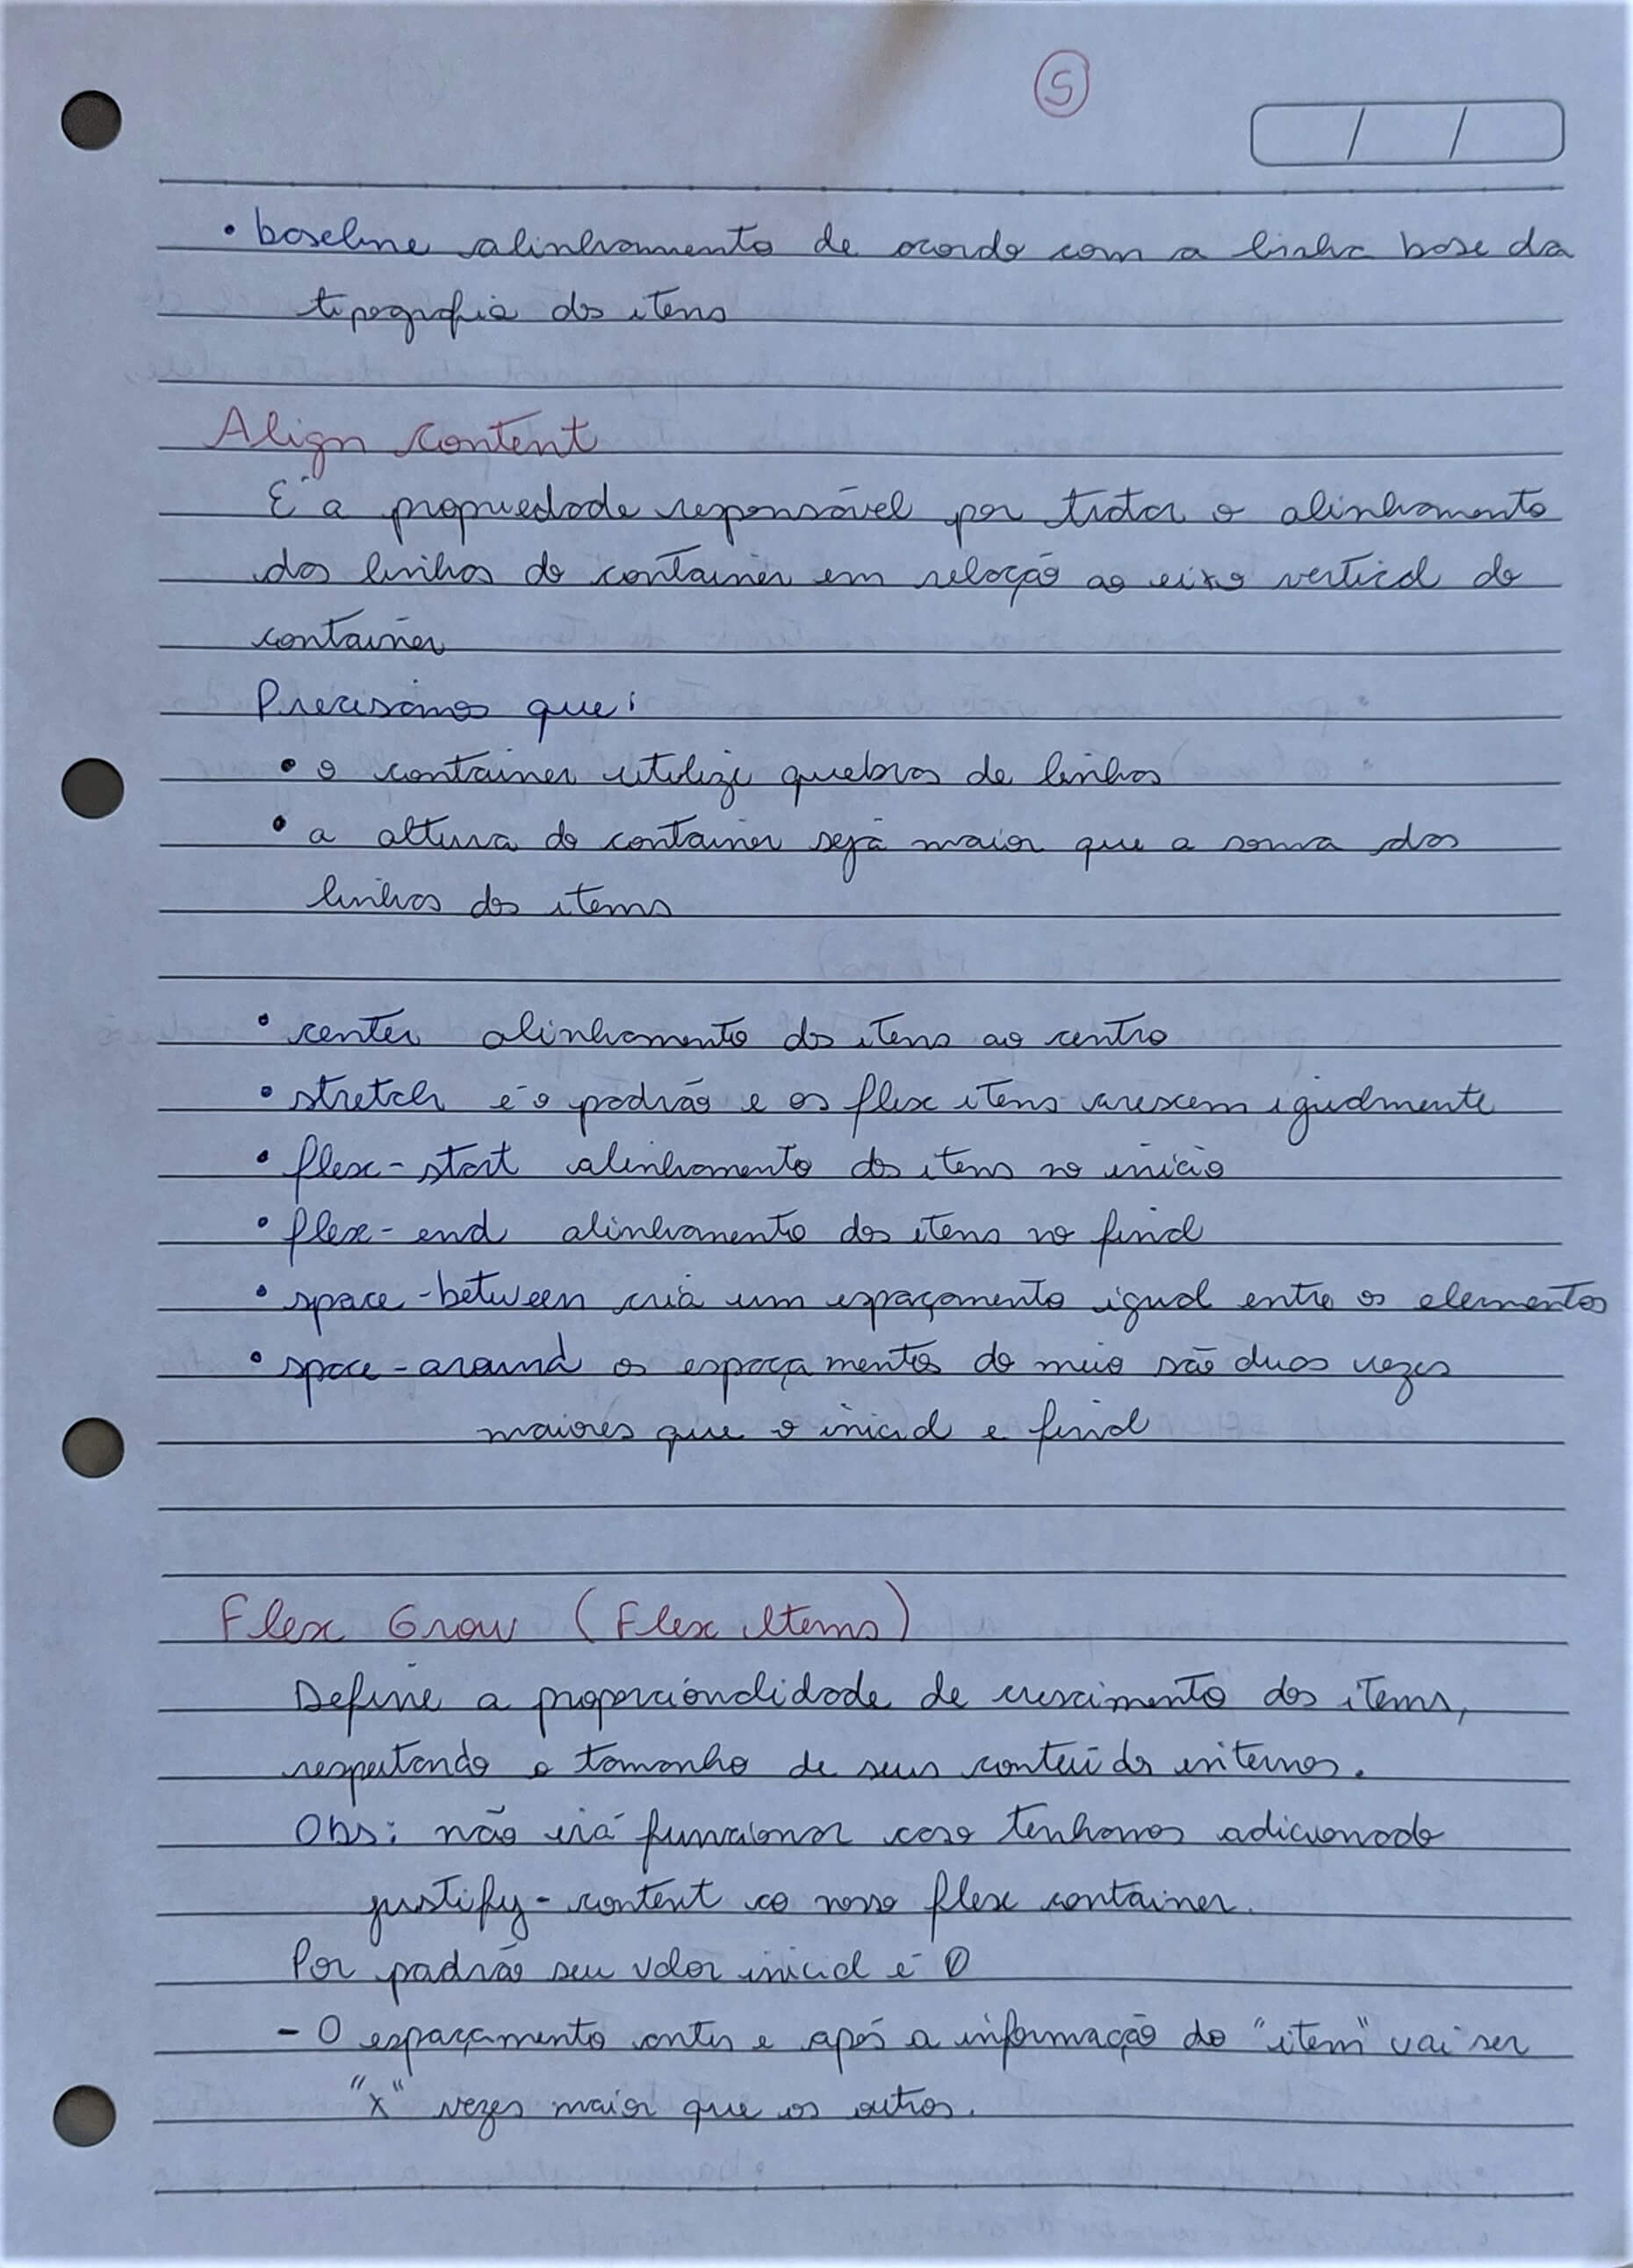 5
/ /
• baseline alinhamento de acordo com a linha base da
tipografia dos itens
Align content
É a propriedade responsável por tratar o alinhamento
das linhas do container em relação ao eixo vertical do
container
Precisamos que:
• o container utilize quebras de linhas
• a altura do container seja maior que a soma das
linhas dos items
• center alinhamento dos itens ao centro
• stretch é o padrão e os flex itens crescem igualmente
• flex-start alinhamento dos itens no início
• flex-end alinhamento dos itens no final
• space-between cria um espaçamento igual entre os elementos
• space-around os espaçamentos do meio são duas vezes
maiores que o inicial e final
Flex Grow (Flex Items)
Define a proporcionalidade de crescimento dos items,
respeitando o tamanho de seus conteúdos internos.
Obs: não irá funcionar caso tenhamos adicionado
justify-content ao nosso flex container.
Por padrão seu valor inicial é 0
- O espaçamento antes e após a informação do "item" vai ser
"x" vezes maior que os outros.